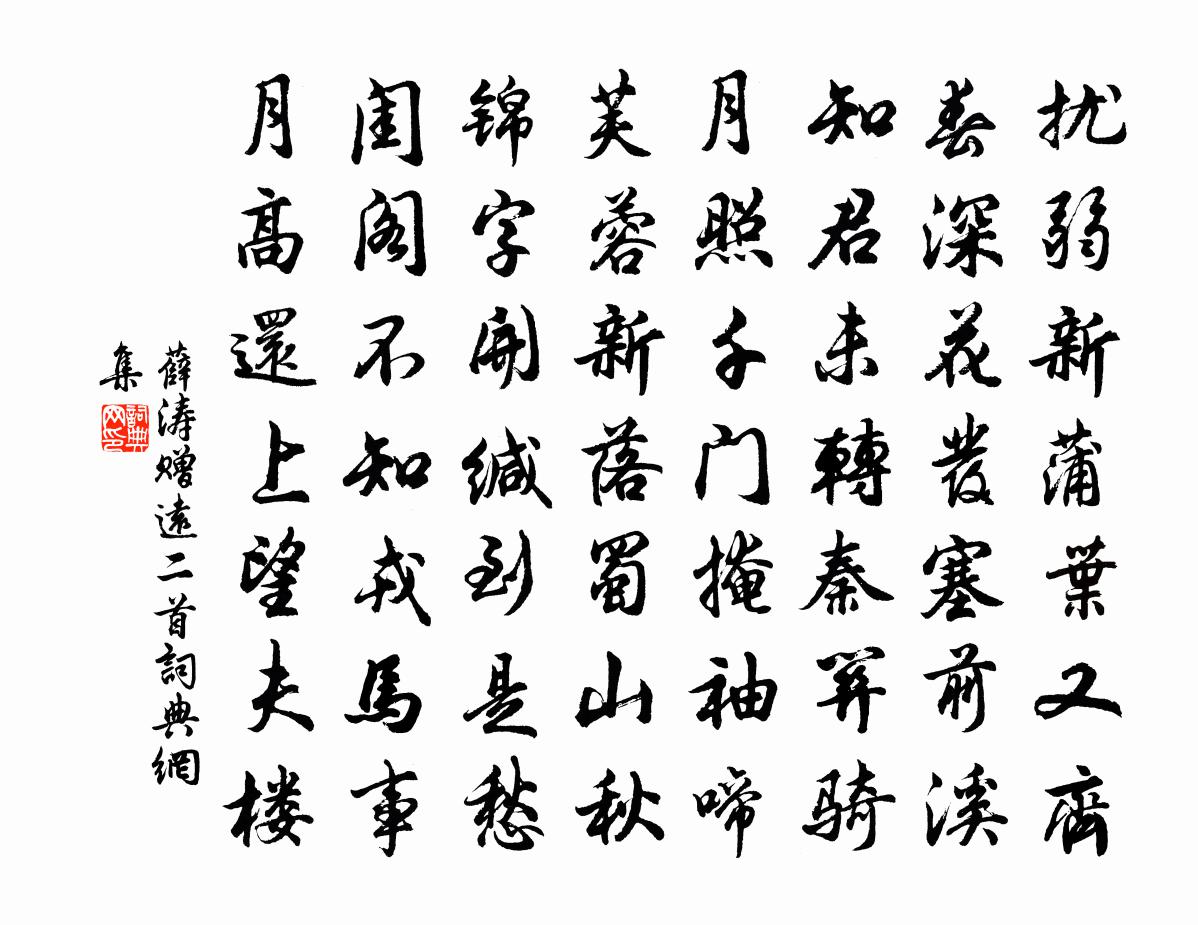 扰弱新蒲葉又齊
春深花發塞前溪
知君未轉秦關騎
月照千门掩袖啼
芙蓉新落蜀山秋
锦字開缄到是愁
闺阁不知戎馬事
月高還上望夫楼
薛涛赠遠二首詞典網
集
詞典
网印